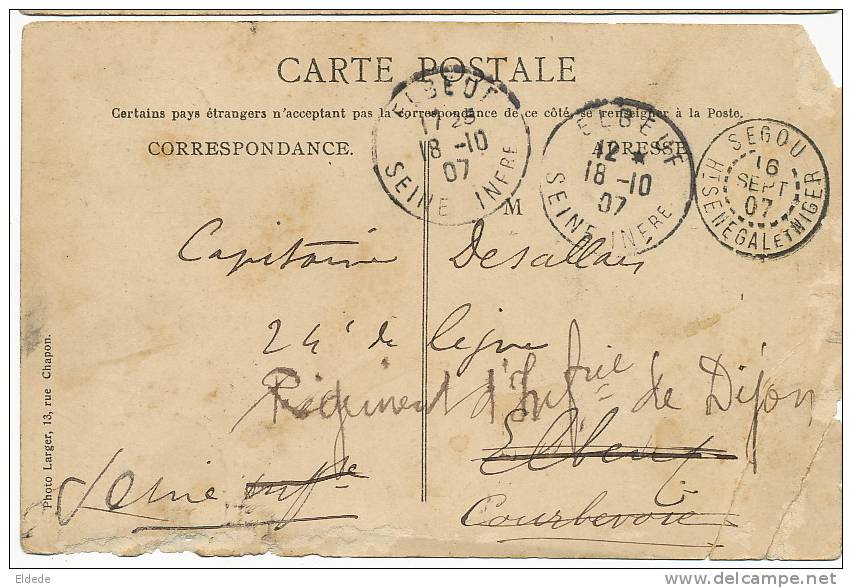 CARTE POSTALE
Certains pays étrangers n'acceptant pas la correspondance de ce côté, se renseigner à la Poste.
CORRESPONDANCE.
ADRESSE
M
ELBEUF
17 25
18 -10
07
SEINE INFRE
ELBEUF
12 *
18 -10
07
SEINE INFRE
SEGOU
16
SEPT
07
HT SENEGAL ET NIGER
Capitaine Desallais
24e de ligne
Régiment d'Infrie de Dijon
Elbeuf
Seine infre
Courbevoie
Photo Larger, 13, rue Chapon.
Eldede
delcampe.net